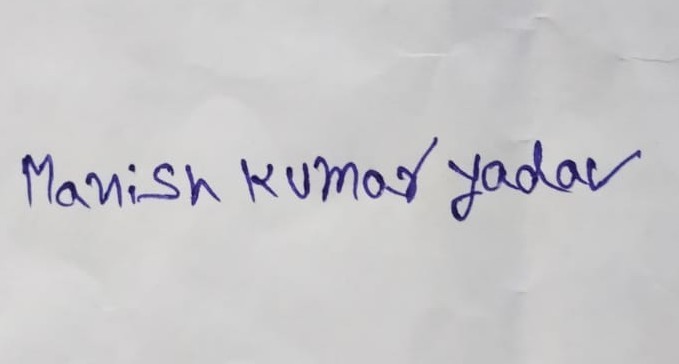 Manish Kumar yadav